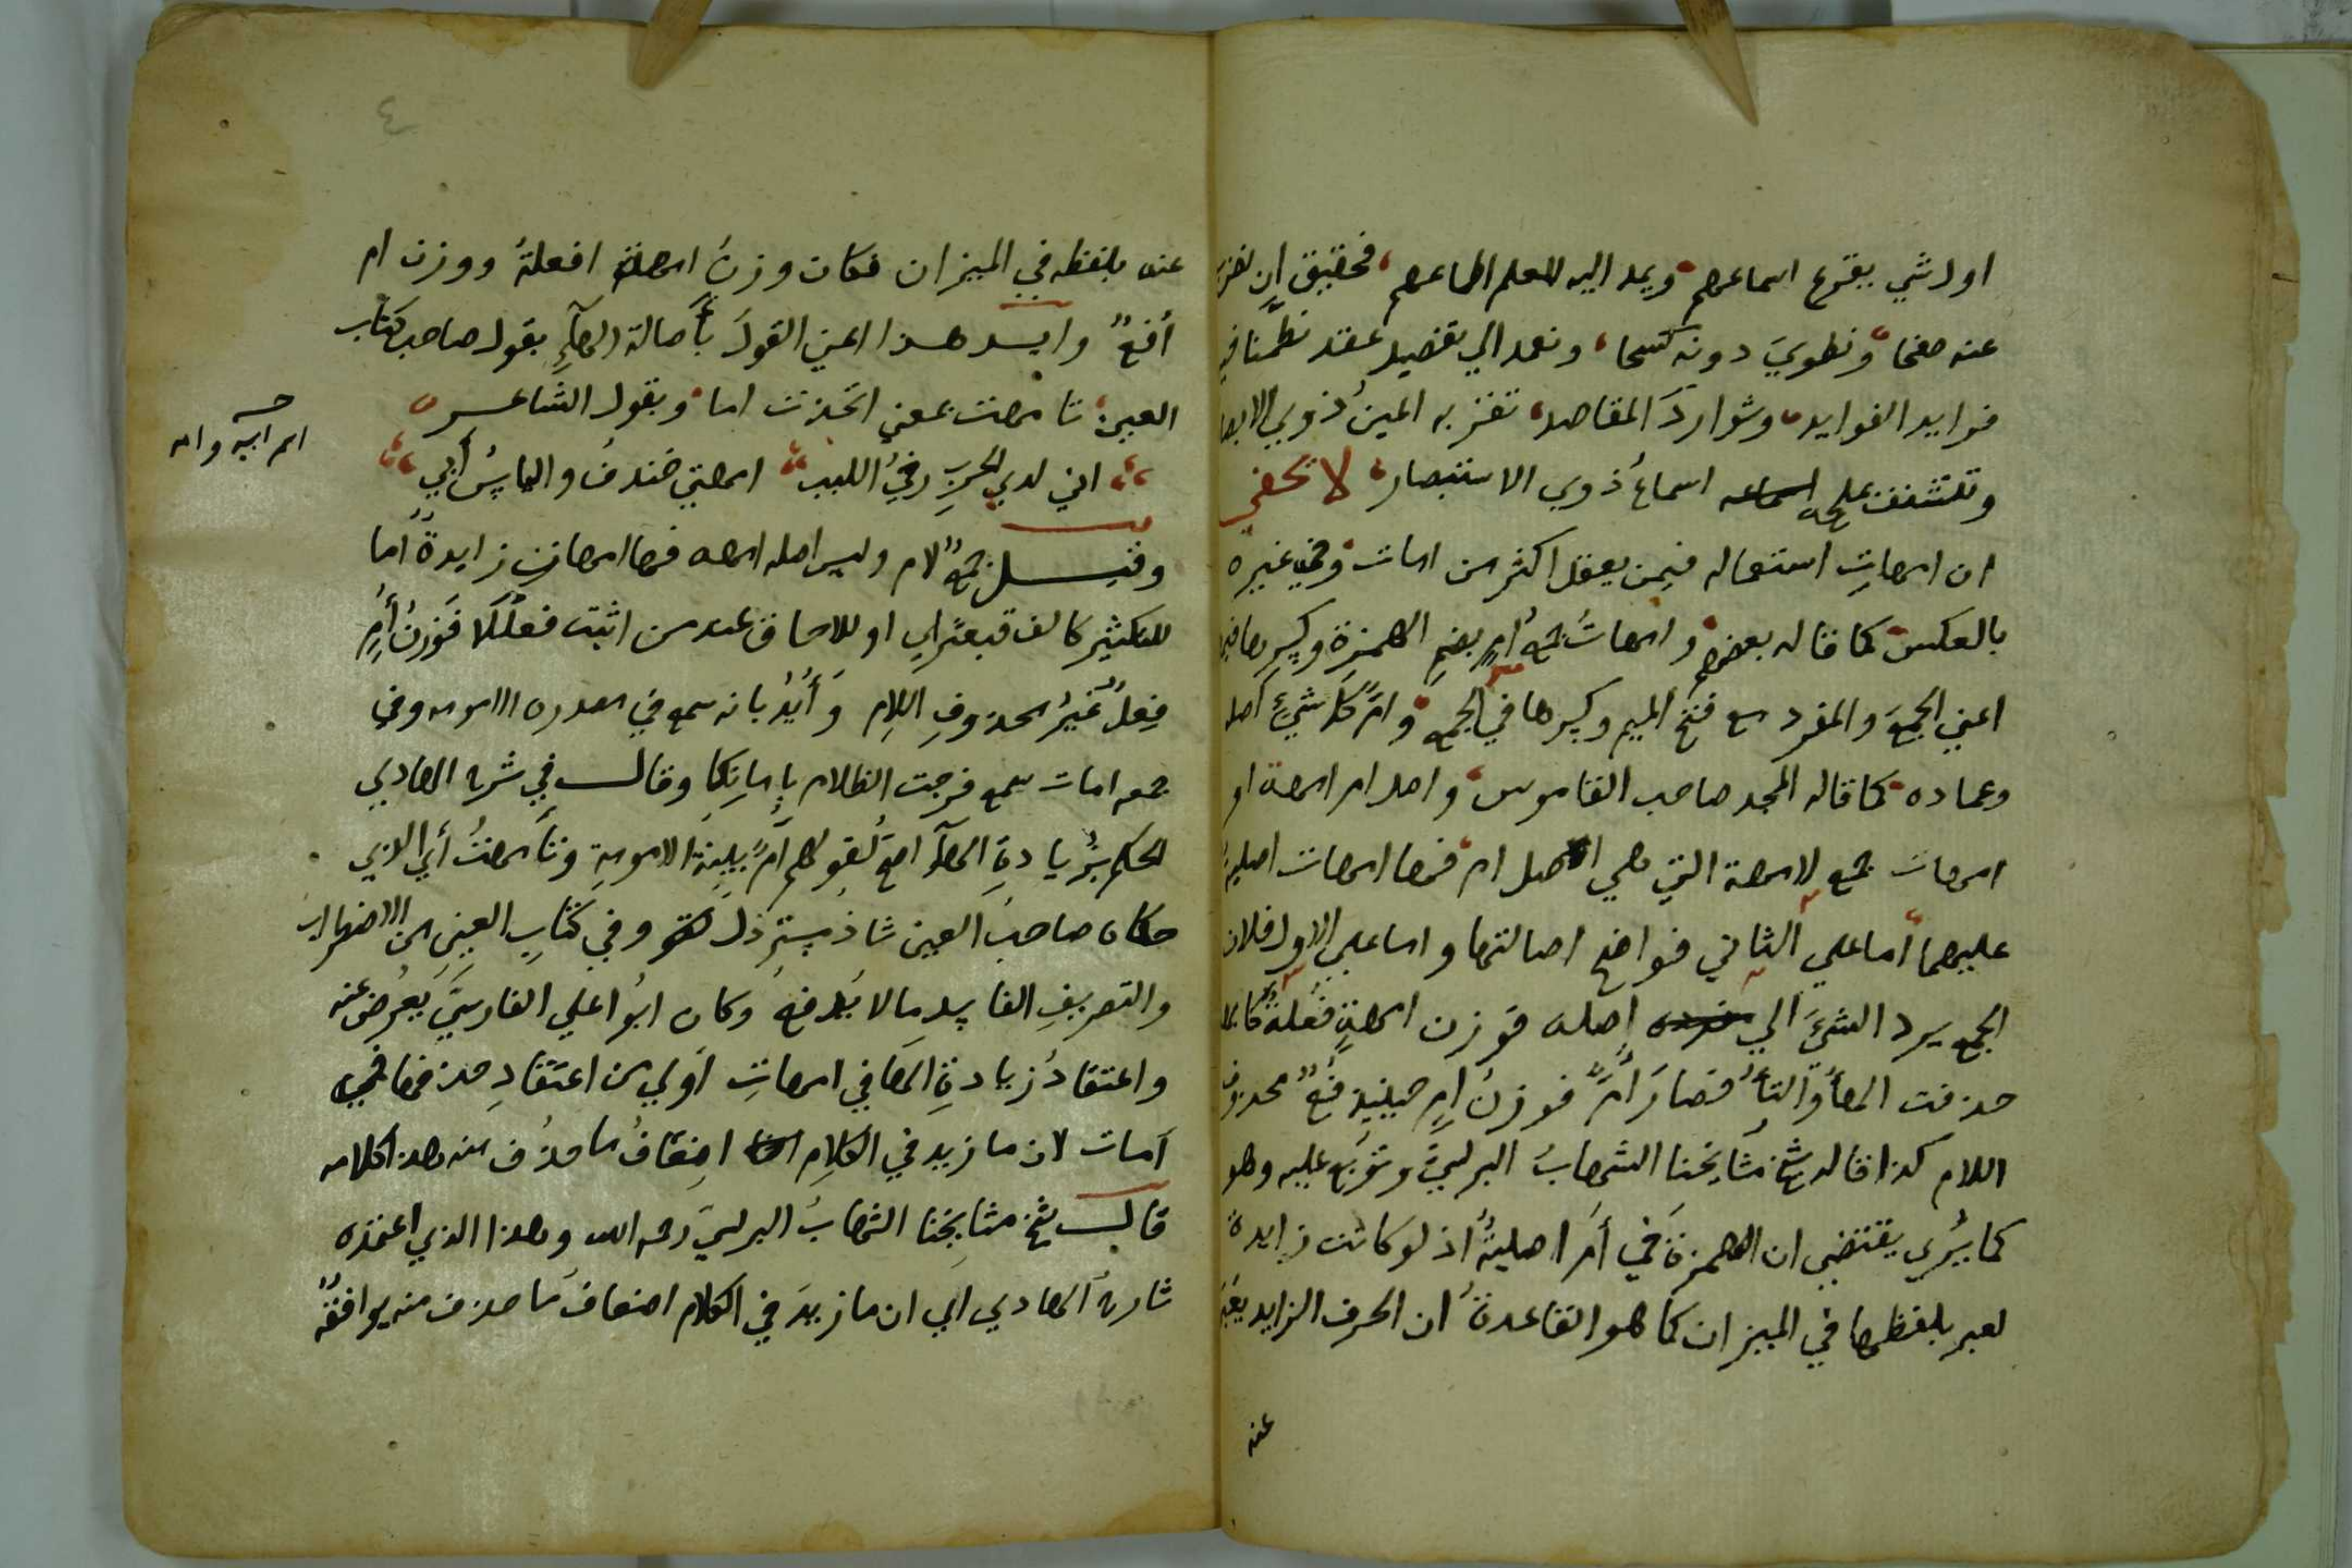 اول شي يقرع اسماعهم ويمد اليه للعلم اطماعهم فحقيق ان نضرب
عنه صفحا ونطوي دونه كشحا ونعمد الي تفصيل عقد نظمنا فيه
فرايد الفوايد وشوارد المقاصد تقر به اعين ذوي الابصار
وتتشنف اسماع ذوي الاستبصار لا تخفي
ان امهات استعماله فيمن يعقل اكثر من امات وفي غيره
بالعكس كما قاله بعضهم وامهات جمع ام بضم الهمزة وكسرها فيها
اعني الجمع والمفرد مع فتح الميم وكسرها في الجمع وام كل شيء اصله
وعماده كما قاله المجد صاحب القاموس واصل ام امهة او
امهات جمع لامهة التي هي اصل ام فهاء امهات اصلية
عليهما اما علي الثاني فواضح اصالتها واما علي الاول فلان
الجمع يرد الشيء الي اصله فوزن امهة فعلة
حذفت الهاء والتاء فصار ام فوزن ام حينيذ فع محذوف
اللام كذا قاله شيخ مشايخنا الشهاب البرلسي وتورع عليه وهو
كما يري يقتضي ان الهمزة في ام اصلية اذ لو كانت زايدة
لعبر بلفظها في الميزان كما هو القاعدة ان الحرف الزايد يعبر
عنه
٤
عنه بلفظه في الميزان فكان وزن امهة افعلة ووزن ام
افع وايد هذا اعني القول باصالة الهاء بقول صاحب كتاب
العين تامهت بمعني اتخذت اما وبقول الشاعر
اني لدي الحرب رخي اللبب امهتي خندف والياس ابي
وقيل جمع لام وليس اصله امهة فهاء امهات زايدة اما
للتكثير كالف قبعثري او للالحاق عند من اثبت فعللا فوزن ام
فعل غير محذوف اللام وايد بانه سمع في مصدره الامومة وفي
جمعه امات سمع فرجت الظلام باماتكا وقال في شرح الهادي
الحكم بزيادة الهاء اصح لقولهم ام بينة الامومة وتامهت اي الذي
حكاه صاحب العين شاذ مسترذل وفي كتاب العين من الاضطراب
والتصريف الفاسد ما لا يدفع وكان ابو علي الفارسي يعرض عنه
واعتقاد زيادة الهاء في امهات اولي من اعتقاد حذفها في
امات لان ما زيد في الكلام اضعاف ما حذف منه هذا كلامه
قال شيخ مشايخنا الشهاب البرلسي رحمه الله وهذا الذي اعتمده
شارح الهادي اي ان ما زيد في الكلام اضعاف ما حذف منه يوافقه
ام ابيه وامه